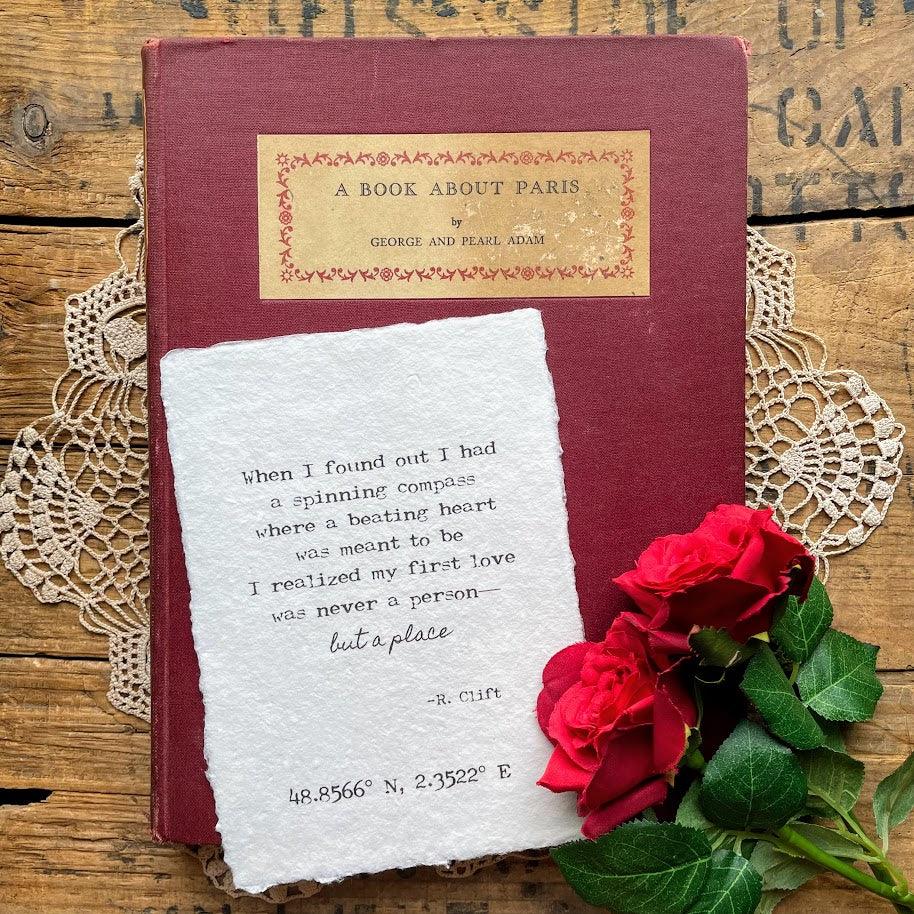 A BOOK ABOUT PARIS
by
GEORGE AND PEARL ADAM
When I found out I had
a spinning compass
where a beating heart
was meant to be
I realized my first love
was never a person—
but a place
-R. Clift
48.8566° N, 2.3522° E